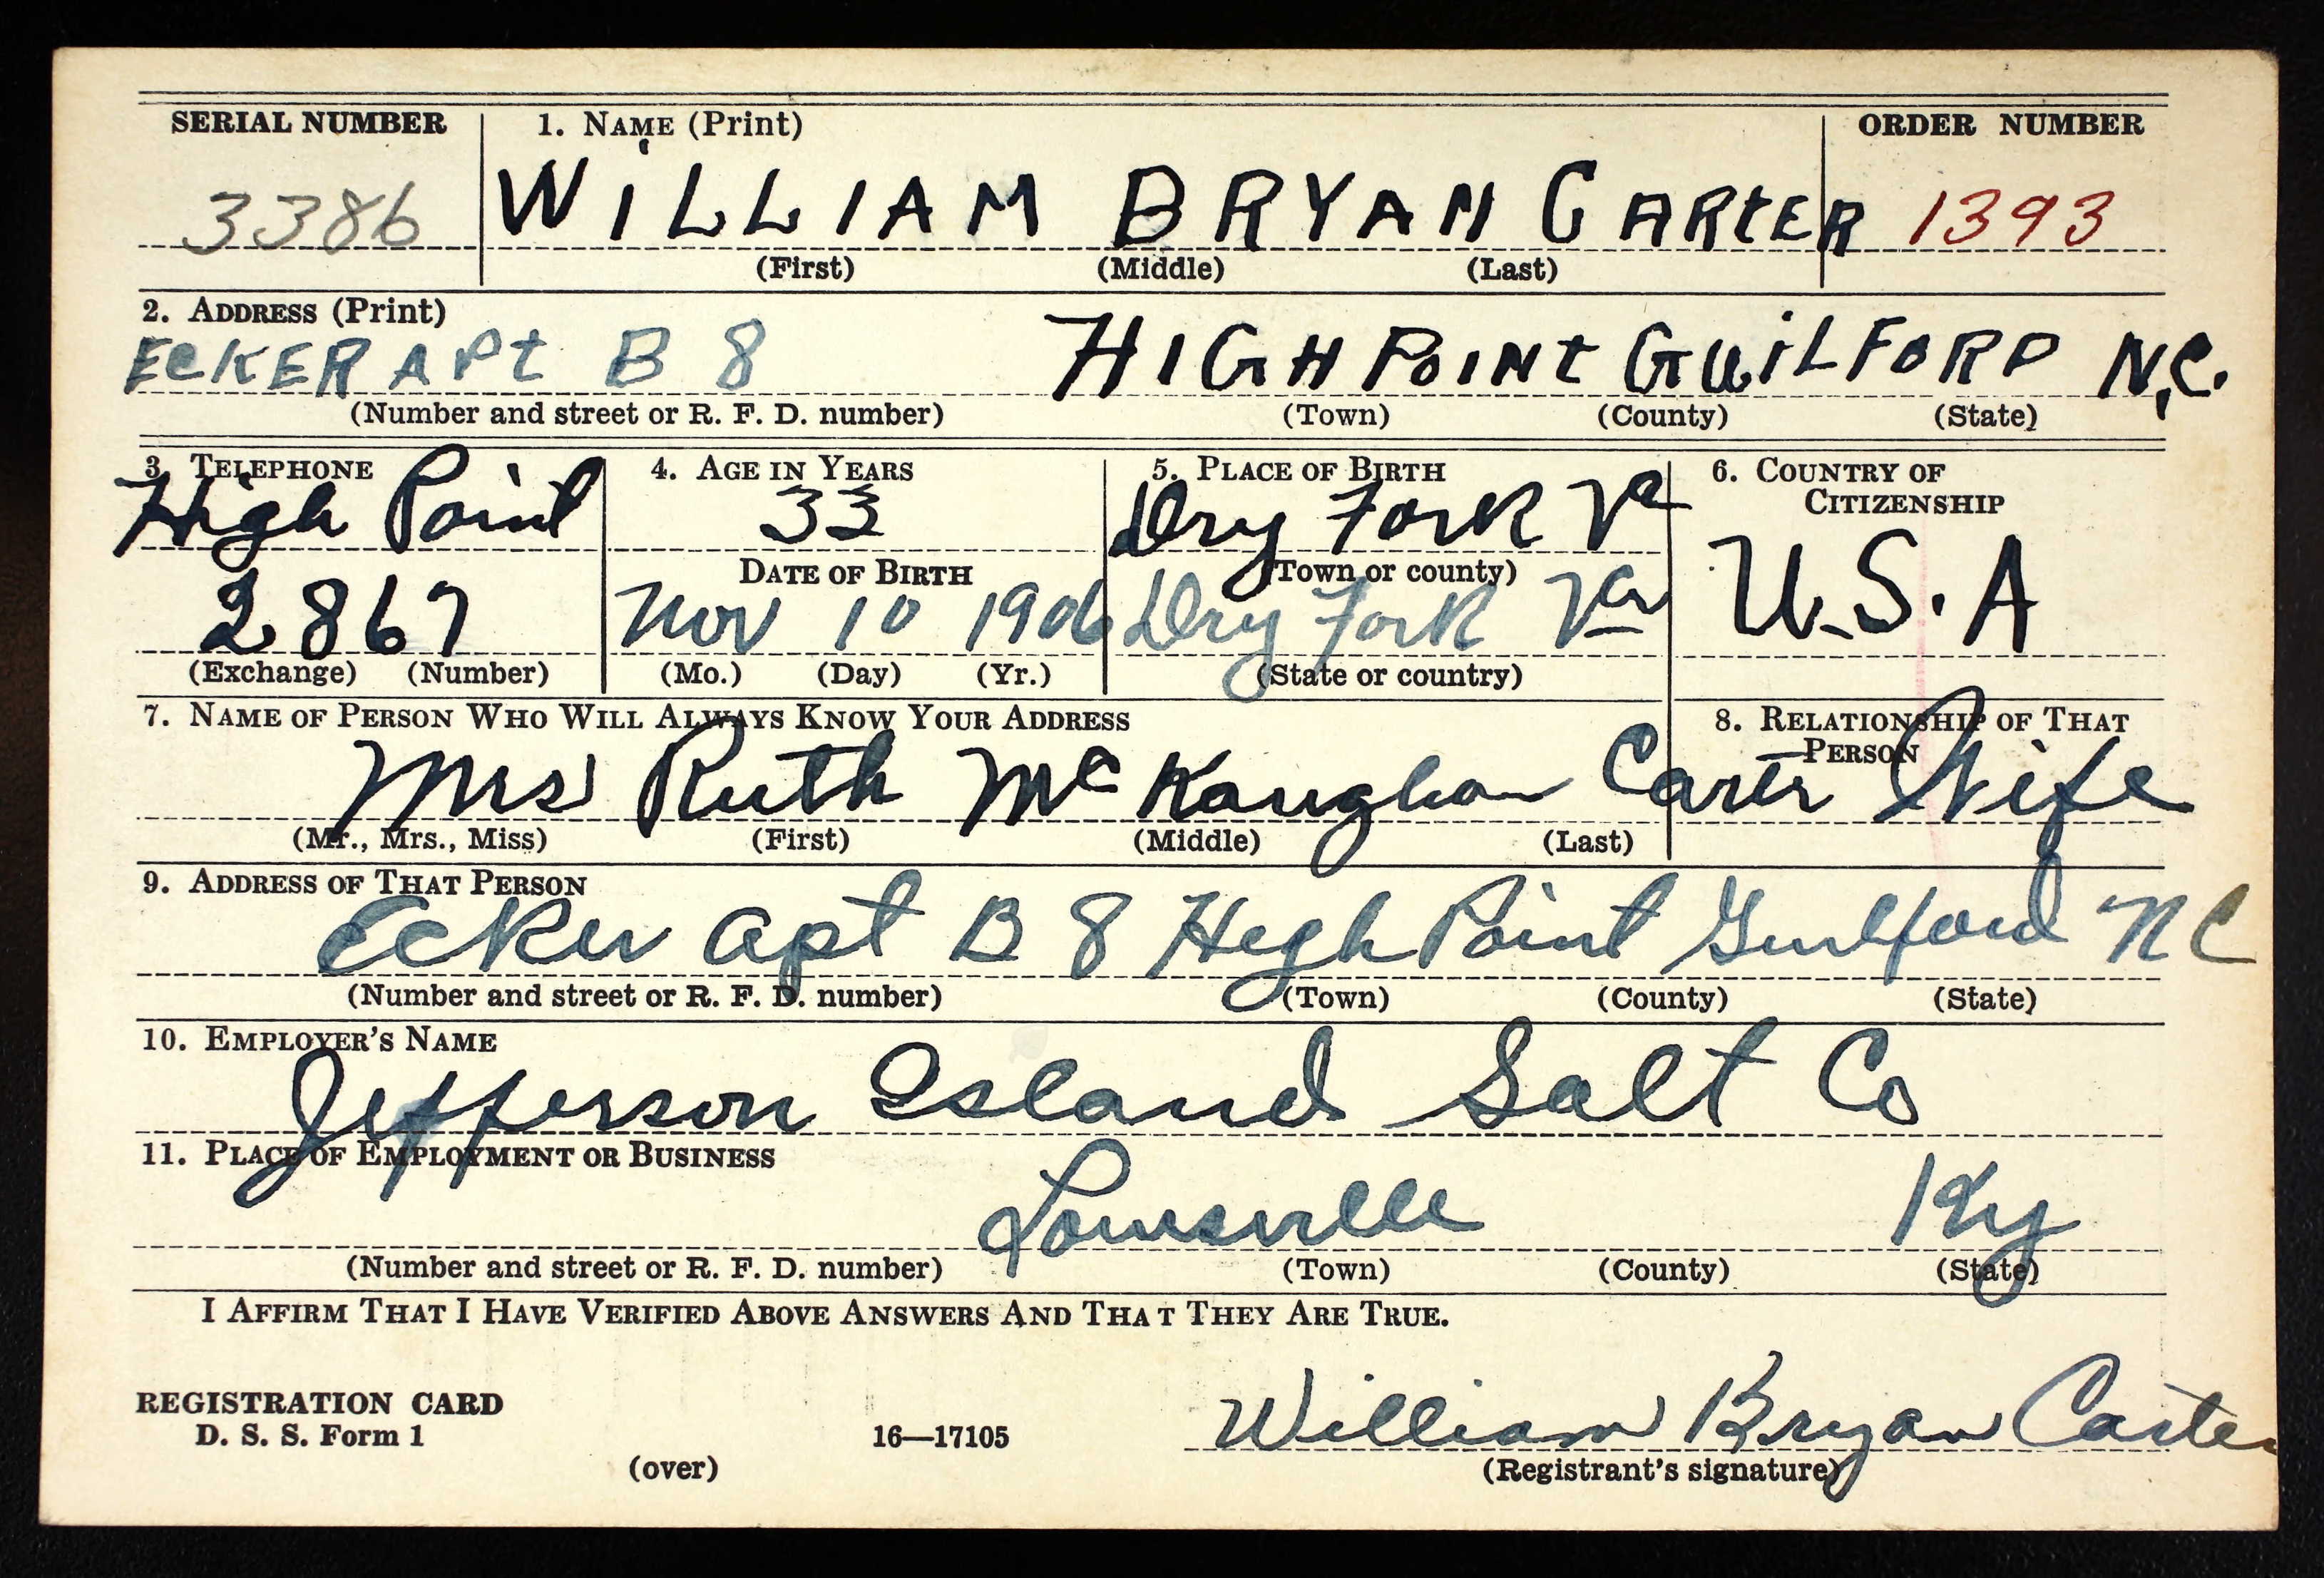 SERIAL NUMBER 1. NAME (Print) ORDER NUMBER
3386 WiLLIAM BRYAN CARtER 1393
(First) (Middle) (Last)
2. ADDRESS (Print)
ECKER APt B 8 HIGH POINt GUiLFORD N.C.
(Number and street or R. F. D. number) (Town) (County) (State)
3. TELEPHONE 4. AGE IN YEARS 5. PLACE OF BIRTH 6. COUNTRY OF
CITIZENSHIP
High Point 33 Dry Fork Va
DATE OF BIRTH (Town or county)
2867 Nov 10 1906 Dry Fork Va U.S.A
(Exchange) (Number) (Mo.) (Day) (Yr.) (State or country)
7. NAME OF PERSON WHO WILL ALWAYS KNOW YOUR ADDRESS 8. RELATIONSHIP OF THAT
PERSON
Mrs Ruth McKaughan Carter Wife
(Mr., Mrs., Miss) (First) (Middle) (Last)
9. ADDRESS OF THAT PERSON
Ecker apt B 8 High Point Guilford NC
(Number and street or R. F. D. number) (Town) (County) (State)
10. EMPLOYER'S NAME
Jefferson Island Salt Co
11. PLACE OF EMPLOYMENT OR BUSINESS
Louisville Ky
(Number and street or R. F. D. number) (Town) (County) (State)
I AFFIRM THAT I HAVE VERIFIED ABOVE ANSWERS AND THAT THEY ARE TRUE.
REGISTRATION CARD
D. S. S. Form 1 16—17105 William Bryan Carter
(over) (Registrant's signature)